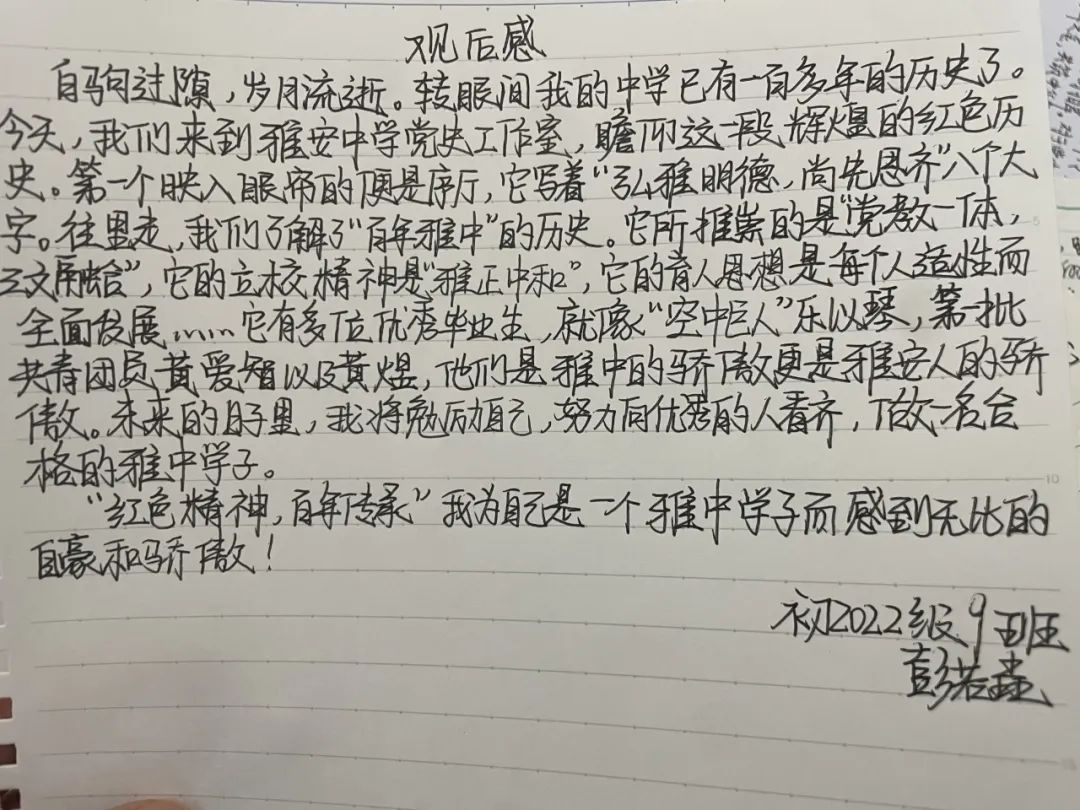 观后感
白驹过隙，岁月流逝。转眼间我的中学已有一百多年的历史了。
今天，我们来到雅安中学党史工作室，瞻仰这一段辉煌的红色历
史。第一个映入眼帘的便是序厅，它写着“弘雅明德，尚先思齐”八个大
字。往里走，我们了解了“百年雅中”的历史。它所推崇的是“党教一体，
三文融合”，它的立校精神是“雅正中和”，它的育人思想是每个人适性而
全面发展……它有多位优秀毕业生，就像“空中巨人”乐以琴，第一批
共青团员黄爱智以及黄煜，他们是雅中的骄傲更是雅安人的骄
傲。未来的日子里，我将勉励自己，努力向优秀的人看齐，做一名合
格的雅中学子。
“红色精神，百年传承”我为自己是一个雅中学子而感到无比的
自豪和骄傲！
初2022级9班
彭若